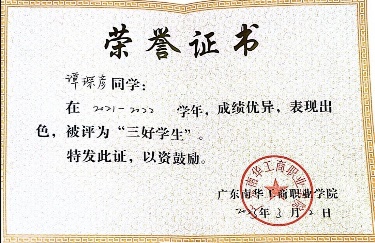 荣誉证书
谭琛彦同学：
在 2021-2022 学年，成绩优异，表现出
色，被评为“三好学生”。
特发此证，以资鼓励。
广东南华工商职业学院
3月2日